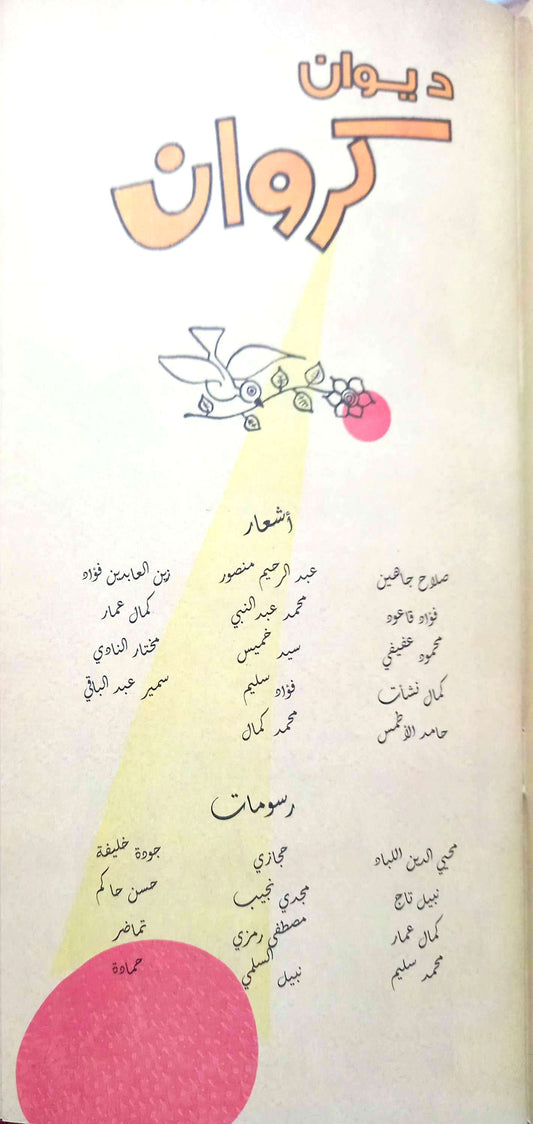 ديوان
كروان
أشعار
صلاح جاهين
فؤاد قاعود
محمود عفيفي
كمال نشأت
حامد الأطمس
عبد الرحيم منصور
محمد عبد النبي
سيد خميس
فؤاد سليم
محمد كمال
زين العابدين فؤاد
كمال عمار
مختار النادي
سمير عبد الباقي
رسومات
محيي الدين اللباد
نبيل تاج
كمال عمار
محمد سليم
حجازي
مجدي نجيب
مصطفى رمزي
نبيل السلمي
جودة خليفة
حسن حاكم
تماضر
حمادة